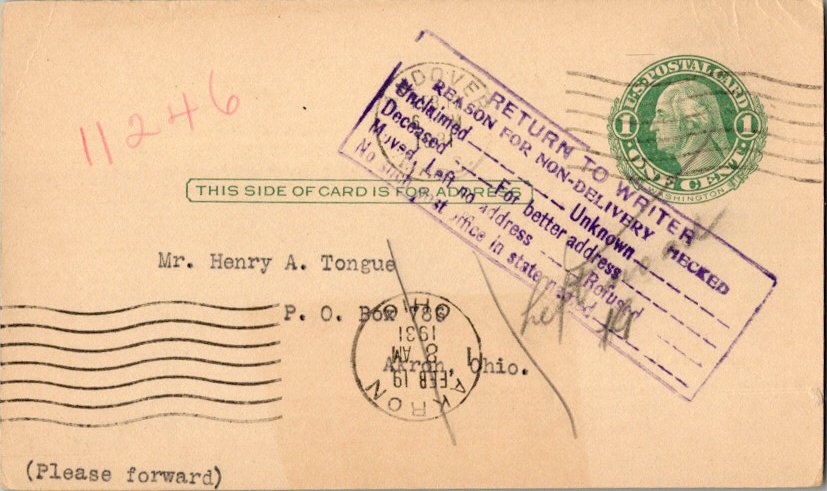 11246
U.S. POSTAL CARD
1 1
ONE CENT
WASHINGTON
DOVER
RETURN TO WRITER
REASON FOR NON-DELIVERY CHECKED
Unclaimed Unknown
Deceased For better address
Moved, Left no address Refused
No such post office in state named
THIS SIDE OF CARD IS FOR ADDRESS
Mr. Henry A. Tongue
P. O. Box
Akron, Ohio.
AKRON
FEB 19
8 AM
1931
OHIO
(Please forward)